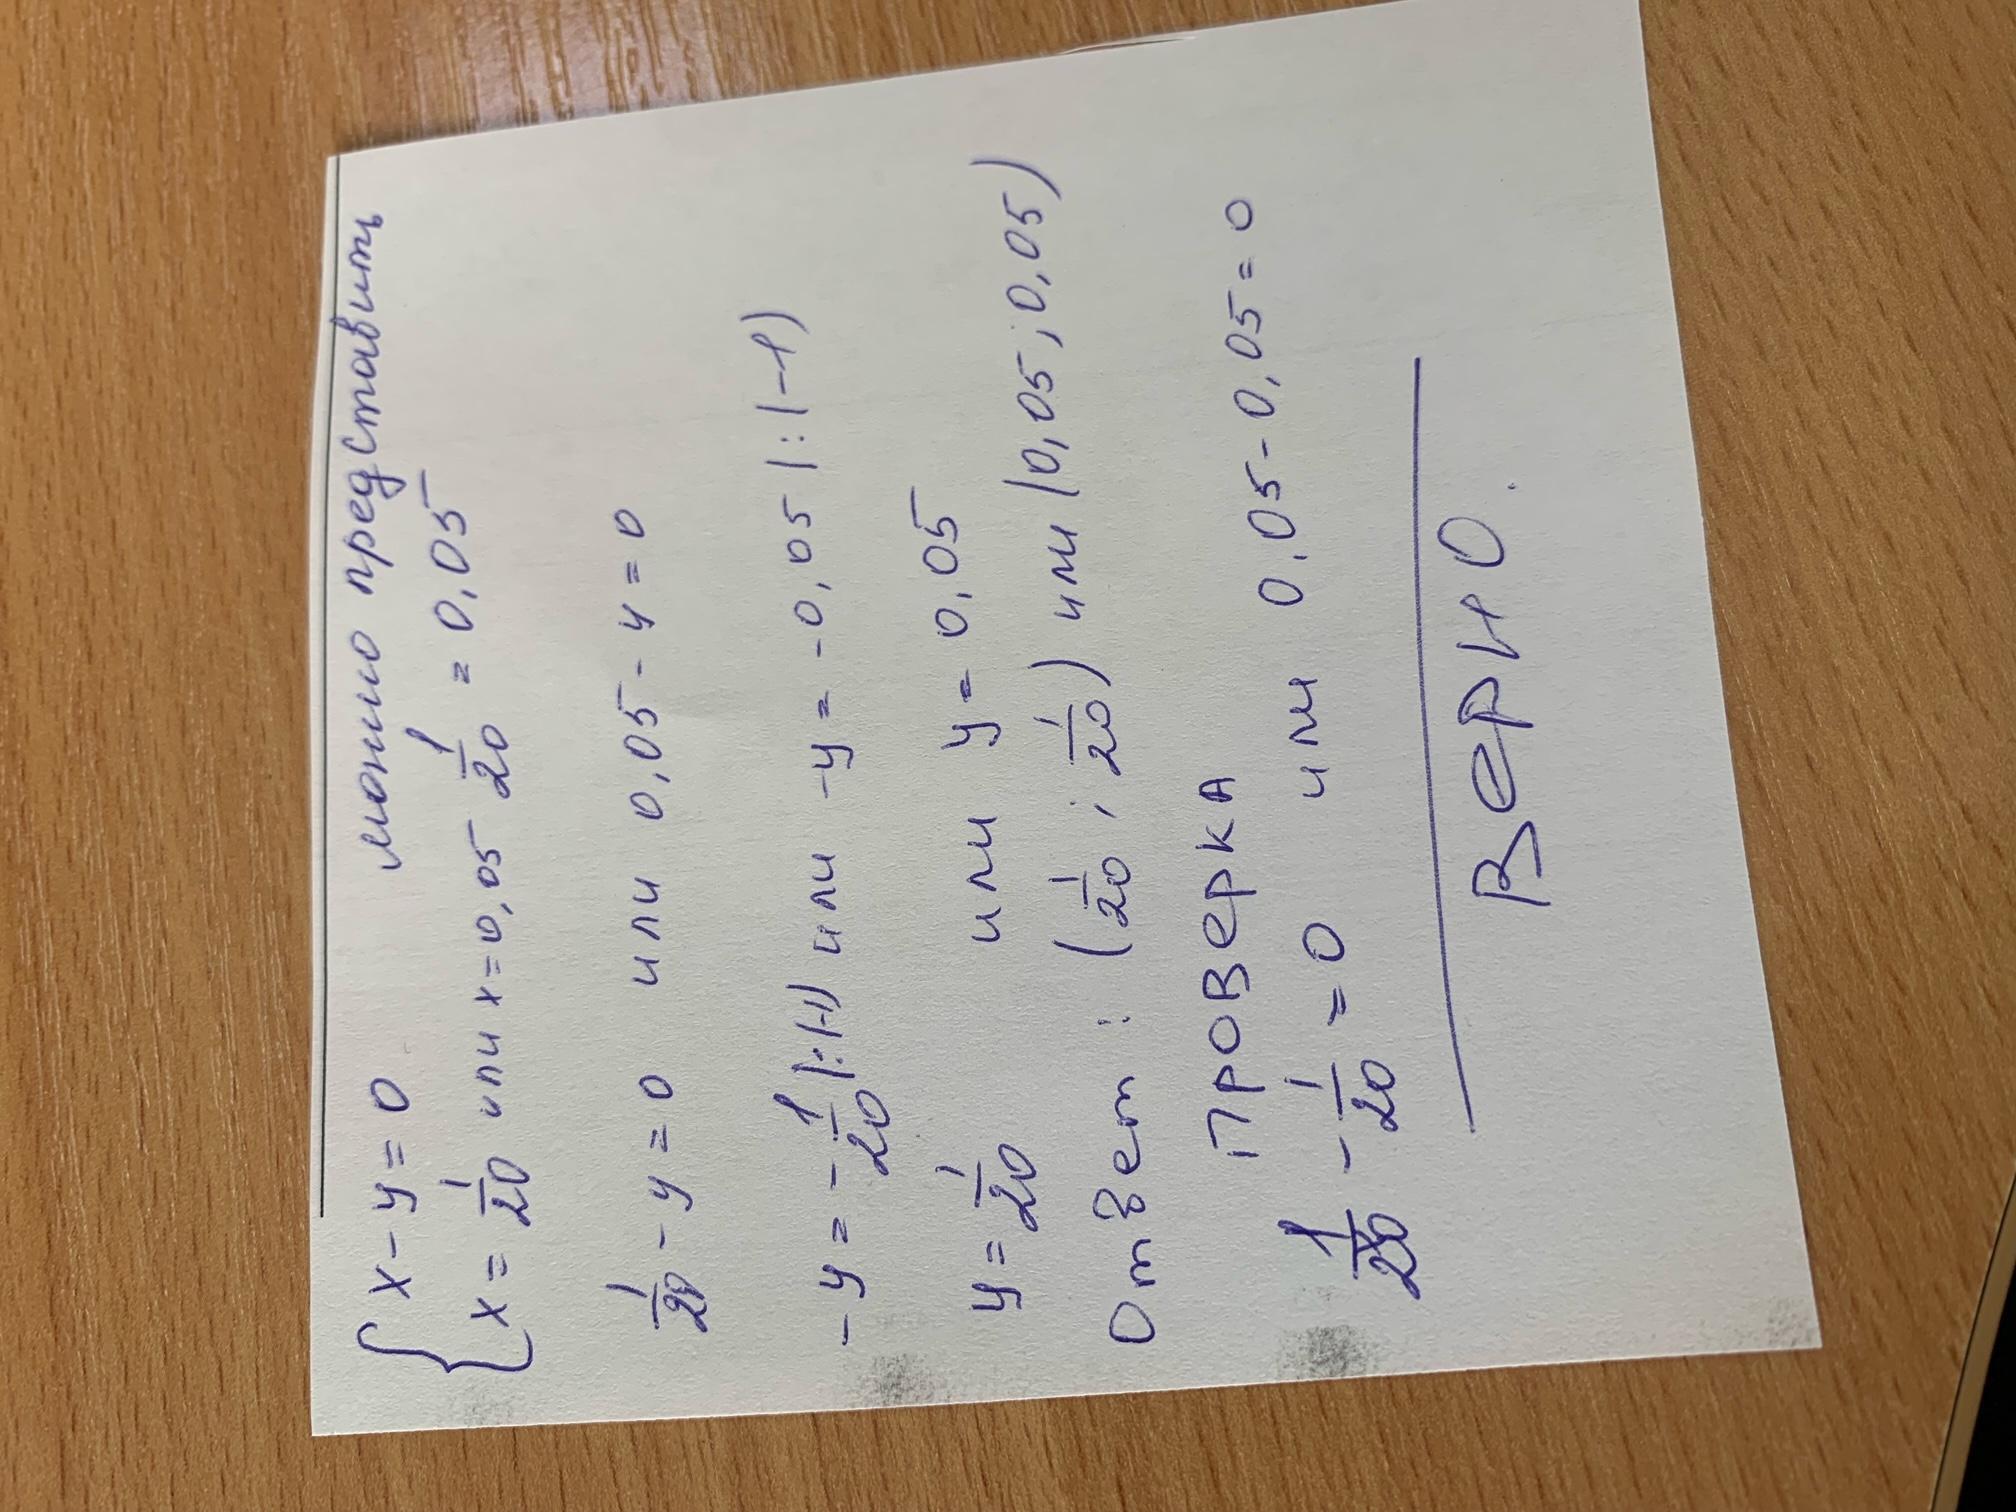 { x - y = 0 можно представить
x = 1/20 или x = 0,05 1/20 = 0,05
1/20 - y = 0 или 0,05 - y = 0
-y = -1/20 |:(-1) или -y = -0,05 |:(-1)
y = 1/20 или y = 0,05
Ответ: (1/20; 1/20) или (0,05; 0,05)
Проверка
1/20 - 1/20 = 0 или 0,05 - 0,05 = 0
Верно.